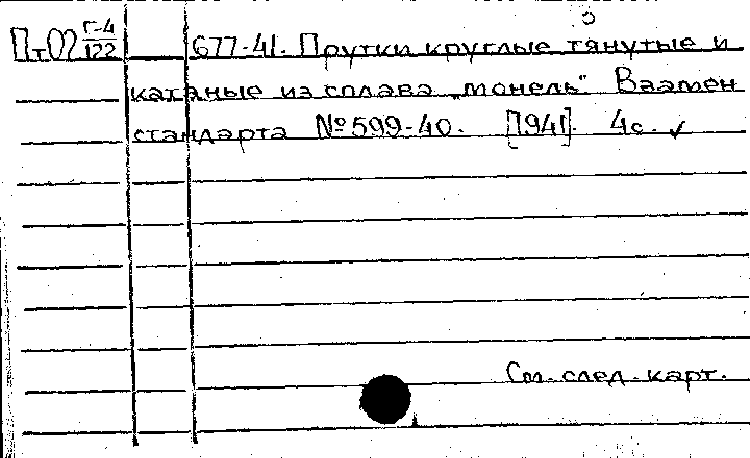 ПтО2 Г-4/122 677-41. Прутки круглые тянутые и
катаные из сплава „монель“ Взамен
стандарта №599-40. [1941]. 4с. ✓
См. след. карт.